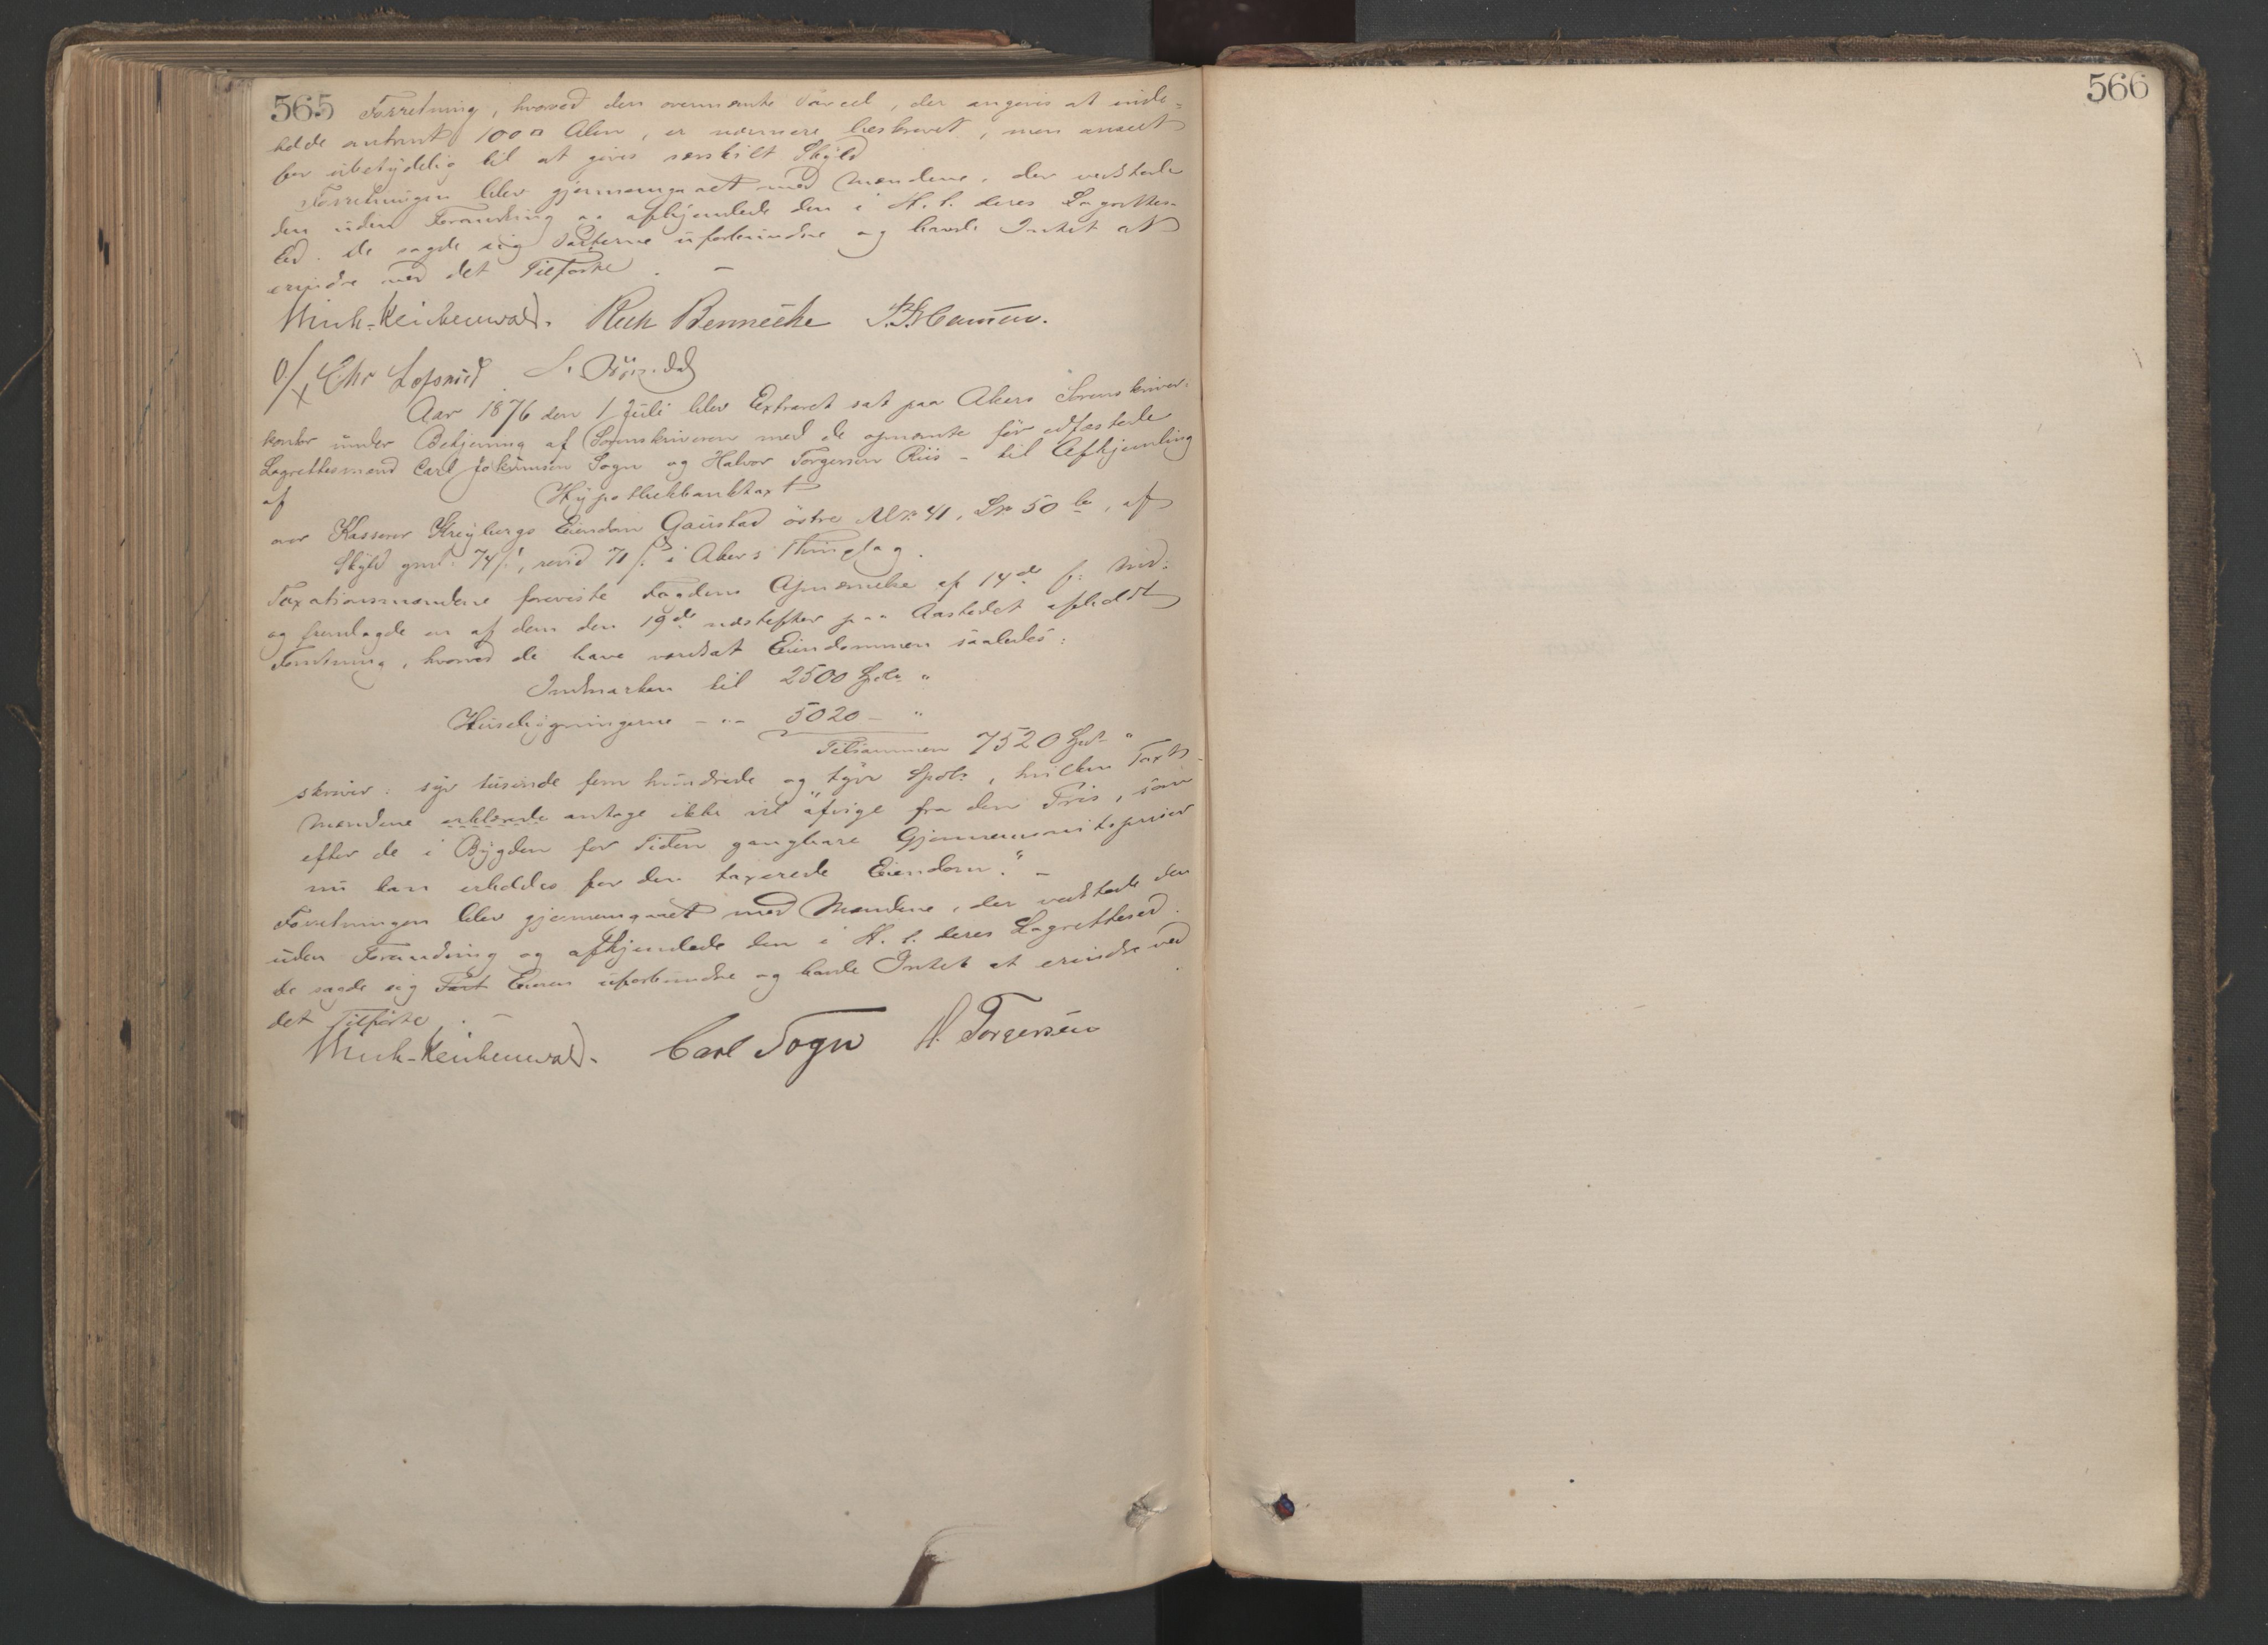 565 Forretning, hvorved den ovennævnte Parcel, der angives at inde-
holde omtrent 100 □ Alen, er nærmere beskrevet, men anseet
for ubetydelig til at gives særskilt Skyld
Forretningen blev gjennemgaaet med Mændene, der vedstode
den uden Forandring og afhjemlede den i H. t. deres Lagrettes-
Ed. De sagde sig Parterne uforbundne og havde Intet at
erindre ved det Tilførte. –
Munk-Reichenwald. Rich Bennecke
Chr Lofsnid
Aar 1876 den 1 Juli blev Extraret sat paa Akers Sorenskriver-
kontor under Betjening af Sorenskriveren med de opnævnte før edfæstede
Lagrettesmænd Carl Jokumsen Sogn og Halvor Torgersen Riis – til Afhjemling
af Hypothekbanktaxt
over Kasserer Kreybergs Eiendom Gaustad østre M.No 41, L.No 50 b, af
Skyld gml. 74 ß, revid 71 ß i Akers Thinglag.
Taxationsmændene foreviste Fogdens Opnævnelse af 14de f. Md.
og fremlagde en af dem den 19de næstefter paa Aastedet afholdt
Forretning, hvorved de have værdsat Eiendommen saaledes:
Indmarken til 2500 Spd. "
Husebygningerne – " – 5020 – "
Tilsammen 7520 Spd. "
skriver: syv tusinde fem hundrede og tyve Spdl., hvilken Taxt
Mændene erklærede antage ikke vil "afvige fra den Pris, som
efter de i Bygden for Tiden gangbare Gjennemsnitspriser
nu kan erholdes for den taxerede Eiendom." –
Forretningen blev gjennemgaaet med Mændene, der vedstode den
uden Forandring og afhjemlede den i H. t. deres Lagrettesed.
De sagde sig Part Eieren uforbundne og havde Intet at erindre ved
det Tilførte. –
Munk-Reichenwald. Carl Sogn H. Torgersen
566